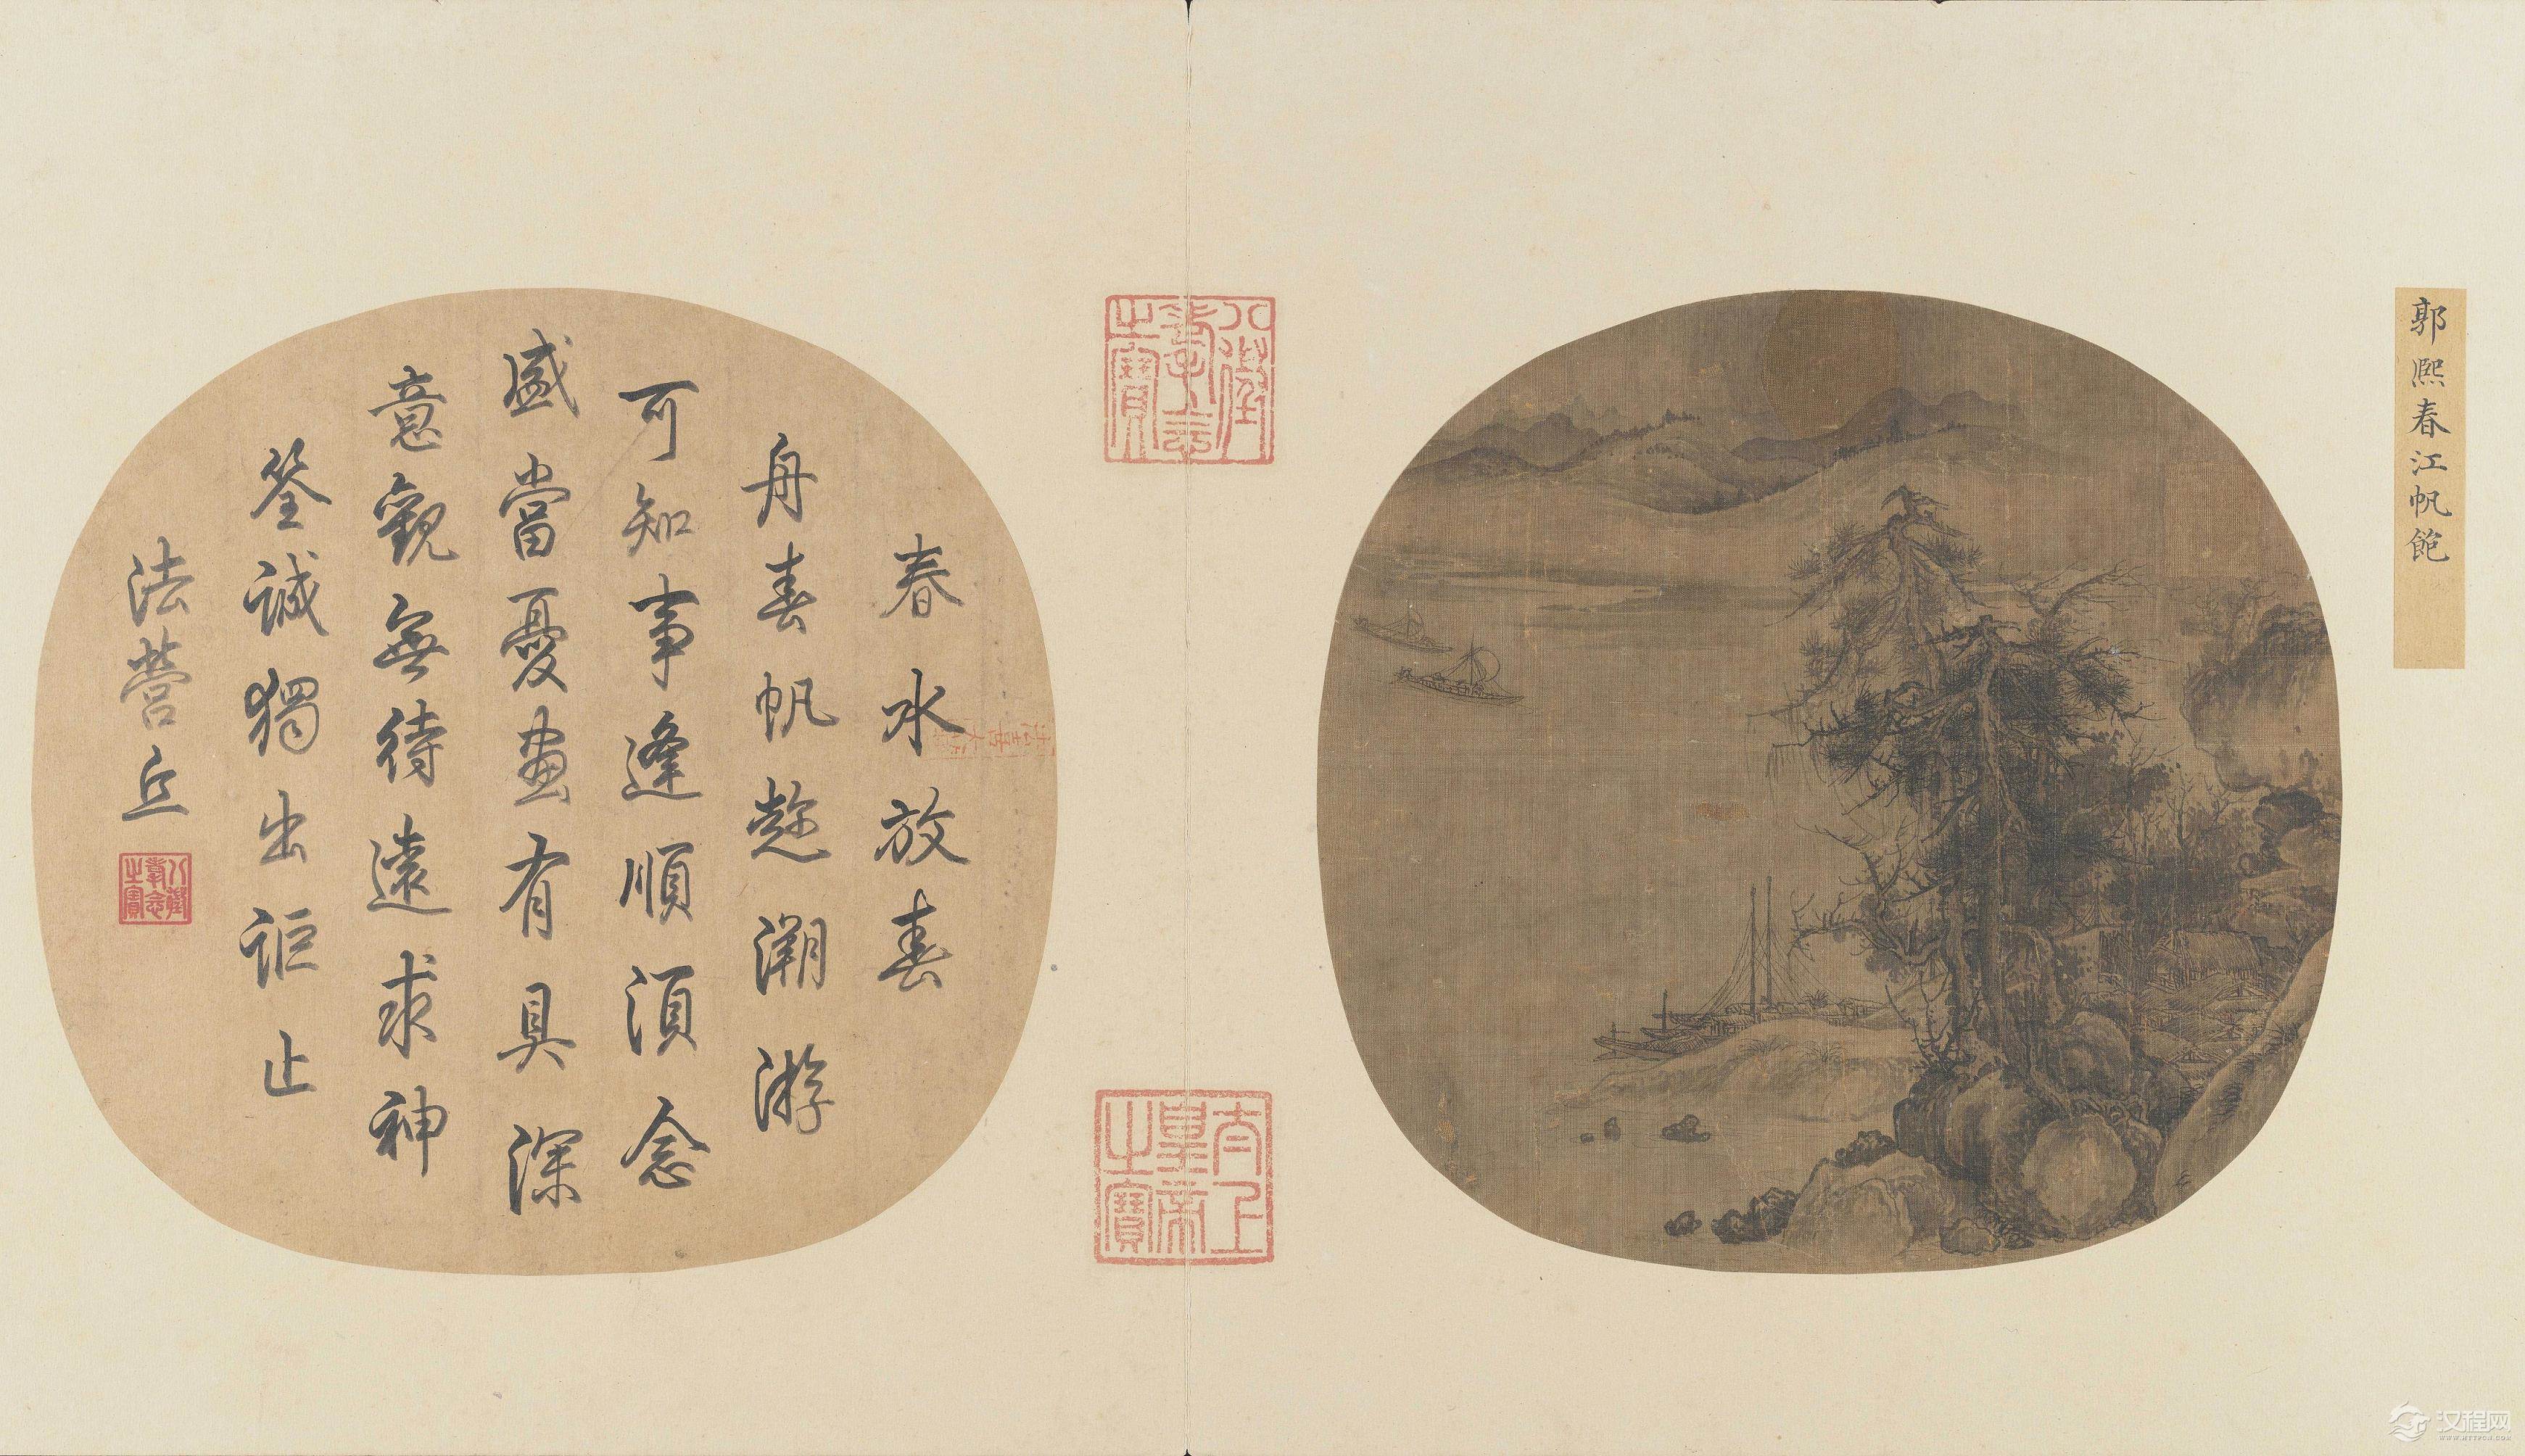 郭熙春江帆飽
八徵耄念之寶
太上皇帝之寶
春水放春
舟春帆趂溯游
可知事逢順須念
盛當憂畫有具深
意觀無待遠求神
筌誠獨出詎止
法營丘
八徵耄念之寶
汉程网
WWW.HTTPCN.COM